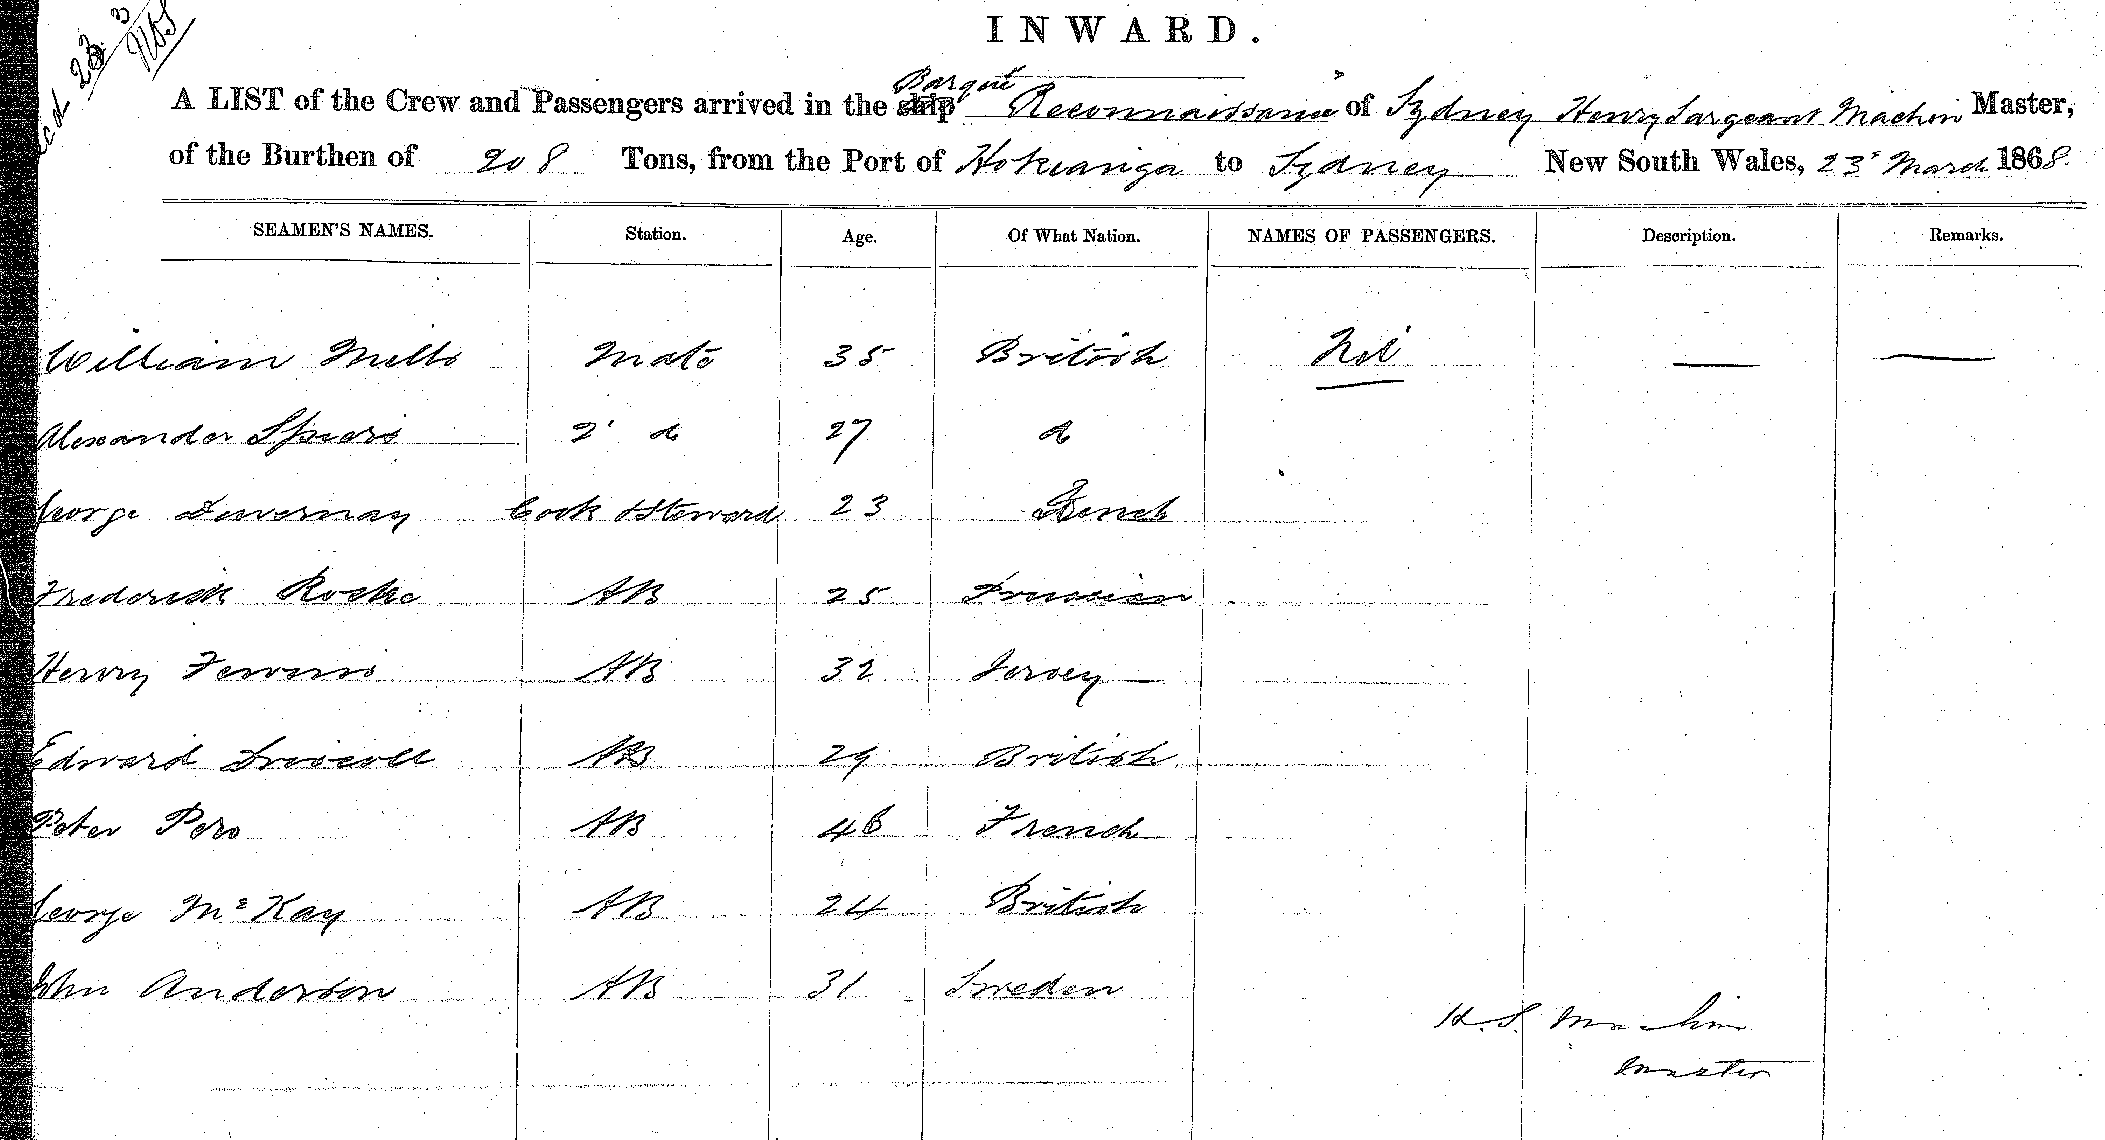 INWARD.
Barque
A LIST of the Crew and Passengers arrived in the ship Reconnaissance of Sydney Henry Sargeant Machin Master,
of the Burthen of 208 Tons, from the Port of Hokianga to Sydney New South Wales, 23 March 1868.
SEAMEN'S NAMES. Station. Age. Of What Nation. NAMES OF PASSENGERS. Description. Remarks.
William Mills Mate 35 British Nil — —
Alexander Spiers 2 d 27 d
George Cook & Steward 23 French
Frederick AB 25 Prussian
Henry AB 32 Jersey
Edward Driscoll AB 29 British
Peter Pero AB 46 French
George McKay AB 24 British
John Anderson AB 31 Sweden
H. S. Machin
Master